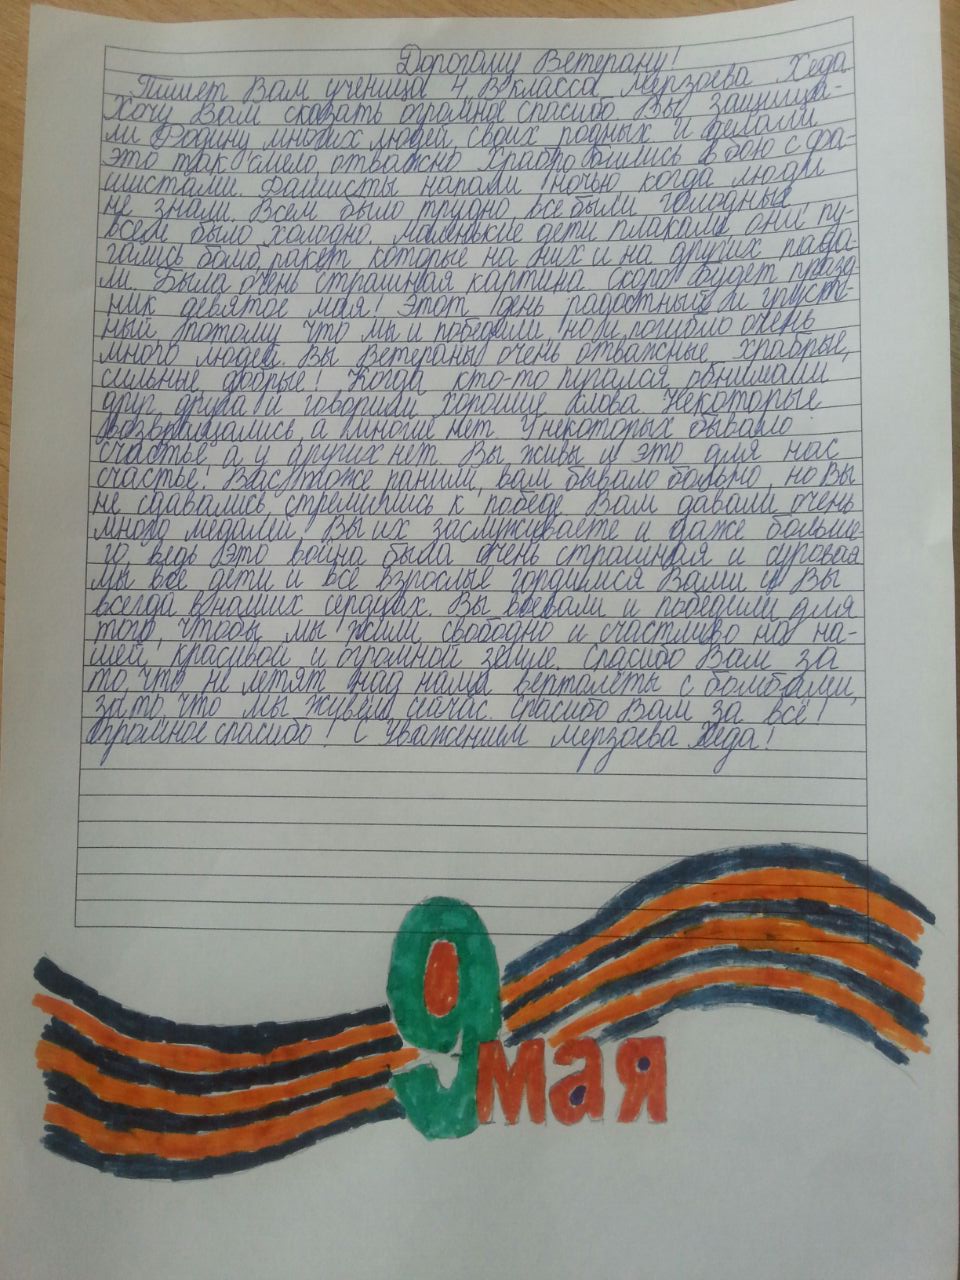 Дорогому Ветерану!
Пишет Вам ученица 4 В класса Мерзоева Хеда
Хочу Вам сказать огромное спасибо. Вы защища-
ли Родину, многих людей, своих родных и делали
это так смело, отважно. Храбро бились в бою с фа-
шистами. Фашисты напали ночью когда люди
не знали. Всем было трудно, все были голодные,
всем было холодно. Маленькие дети плакали они пу-
гались бомб, ракет которые на них и на других пада-
ли. Была очень страшная картина. Скоро будет празд-
ник девятое мая! Этот день радостный и груст-
ный потому что мы и победили но и погибло очень
много людей. Вы Ветераны очень отважные, храбрые,
сильные, добрые! Когда кто-то пугался, обнимали
друг друга и говорили хорошие слова. Некоторые
возвращались, а многие нет. У некоторых бывало
счастье а у других нет. Вы живы и это для нас
счастье! Вас тоже ранили, вам бывало больно, но Вы
не сдавались, стремились к победе. Вам давали очень
много медалей, Вы их заслуживаете и даже больше-
го, ведь это война была очень страшная и суровая
мы все дети и все взрослые гордимся Вами и Вы
всегда в наших сердцах. Вы воевали и победили для
того, чтобы мы жили свободно и счастливо на на-
шей красивой и огромной земле. Спасибо Вам за
то, что не летят над нами вертолёты с бомбами,
за то, что мы живём сейчас. Спасибо Вам за всё!
Огромное спасибо! С Уважением Мерзоева Хеда!
9 мая